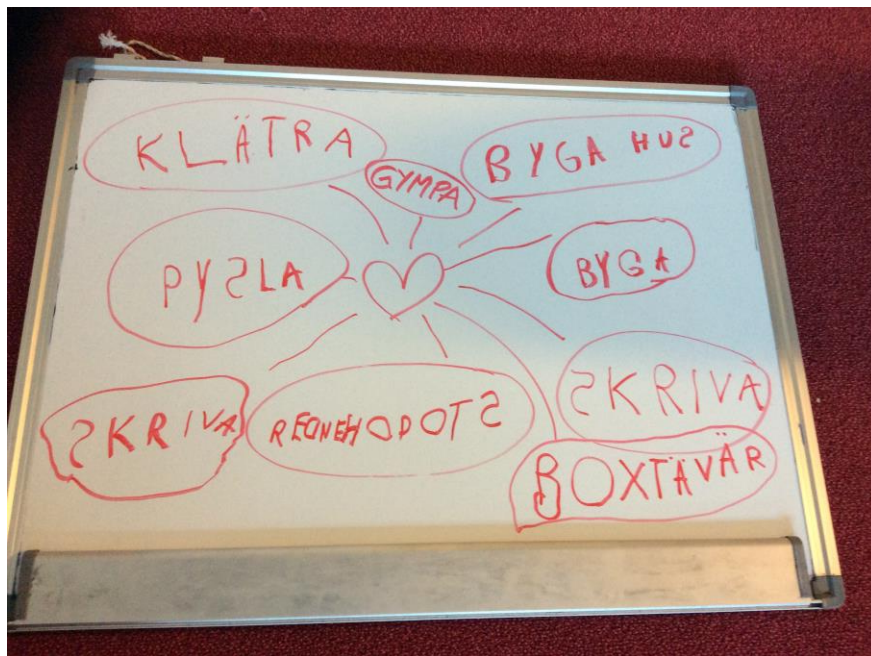 KLÄTRA
GYMPA
BYGA HUS
PYSLA
BYGA
SKRIVA
SKRIVA
BOXTÄVÄR